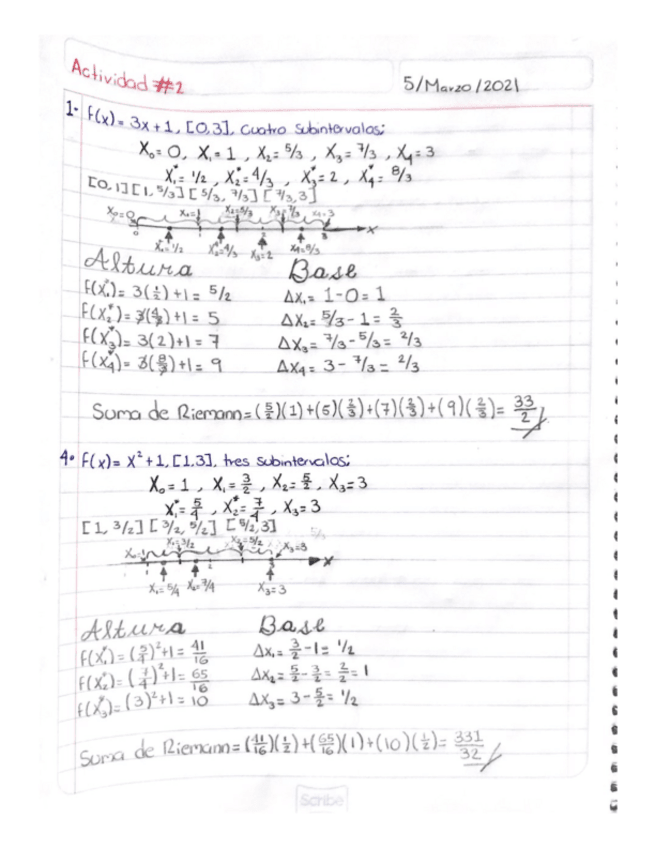 Actividad #2
5/Marzo/2021
1. f(x)=3x+1, [0,3], Cuatro subintervalos;
X₀=0, X₁=1, X₂=5/3, X₃=7/3, X₄=3
X₁*=1/2, X₂*=4/3, X₃*=2, X₄*=8/3
[0,1] [1,5/3] [5/3, 7/3] [7/3,3]
X₀=0 X₁=1 X₂=5/3 X₃=7/3 X₄=3
X
X₁*=1/2 X₂*=4/3 X₃=2 X₄=8/3
Altura Base
f(X₁*)=3(1/2)+1=5/2 ΔX₁=1-0=1
f(X₂*)=3(4/3)+1=5 ΔX₂=5/3-1=2/3
f(X₃*)=3(2)+1=7 ΔX₃=7/3-5/3=2/3
f(X₄*)=3(8/3)+1=9 ΔX₄=3-7/3=2/3
Suma de Riemann=(5/2)(1)+(5)(2/3)+(7)(2/3)+(9)(2/3)=33/2
4. f(x)=X²+1, [1,3], tres subintervalos;
X₀=1, X₁=3/2, X₂=5/2, X₃=3
X₁*=5/4, X₂*=7/4, X₃=3
[1, 3/2] [3/2, 5/2] [5/2, 3]
X₀=1 X₁=3/2 X₂=5/2 X₃=3
X
X₁=5/4 X₂=7/4 X₃=3
Altura Base
f(X₁*)=(5/4)²+1=41/16 ΔX₁=3/2-1=1/2
f(X₂*)=(7/4)²+1=65/16 ΔX₂=5/2-3/2=2/2=1
f(X₃*)=(3)²+1=10 ΔX₃=3-5/2=1/2
Suma de Riemann=(41/16)(1/2)+(65/16)(1)+(10)(1/2)=331/32
Scribe